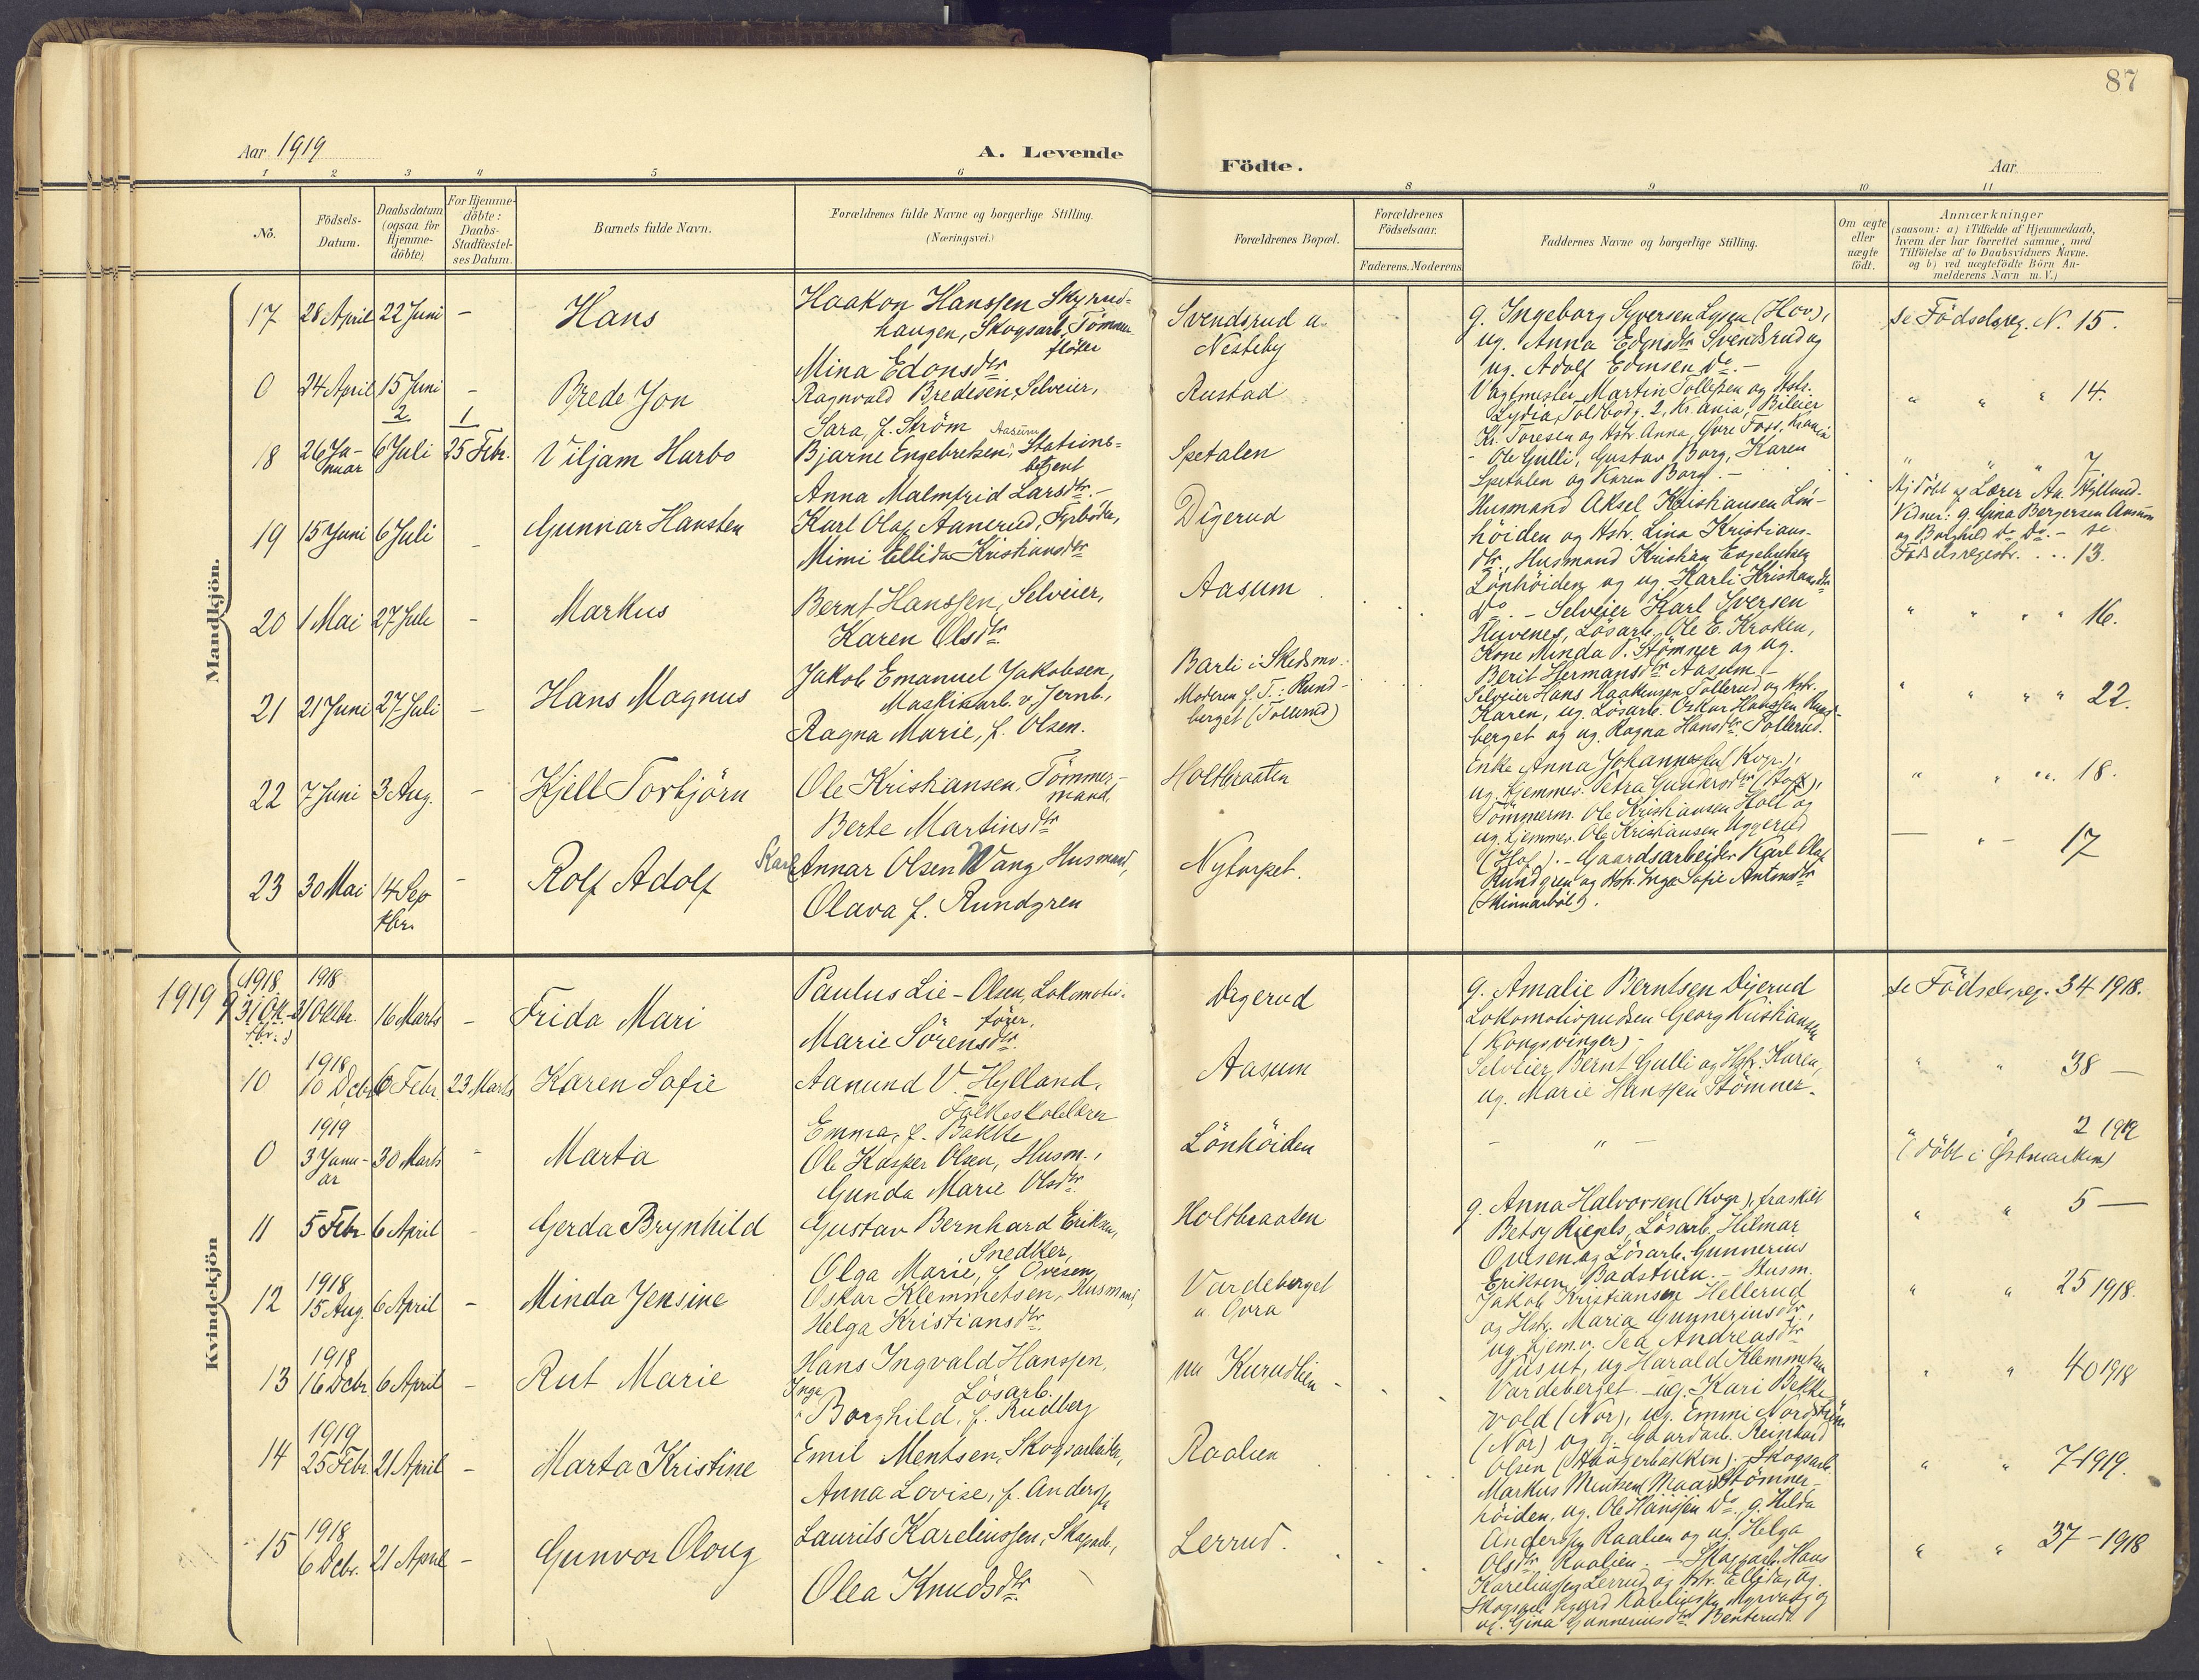 87
Aar 1919
A. Levende
Födte.
Aar
1 2 3 4 5 6 8 9 10 11
No.
Födsels-Datum.
Daabsdatum (ogsaa for Hjemme-döbte)
For Hjemme-döbte: Daabs-Stadfæstel-ses Datum.
Barnets fulde Navn.
Forældrenes fulde Navne og borgerlige Stilling.
(Næringsvei.)
Forældrenes Bopæl.
Forældrenes Födselsaar.
Faderens. Moderens
Faddernes Navne og borgerlige Stilling.
Om ægte eller uægte födt.
Anmærkninger
(saasom: a) i Tilfælde af Hjemmedaab,
hvem der har forrettet samme, med
Tilföielse af to Daabsvidners Navne.
og b) ved uægtefödte Börn An-
melderens Navn m.V.)
Mandkjön.
17 28 April 22 Juni - Hans
Haakon Hanssen Skyrud-
haugen, Skogsarb. Tömmer
flöter
Mina Edonsdtr
Svendsrud u.
Nesteby
g. Ingeborg Syversen Lysen (Hov),
ug. Anna Edonsdtr Svendsrud og
ug. Adolf Edonsen Do. -
se Födselsreg. N. 15.
0 24 April 15 Juni - Brede Jon
Ragnvald Bredesen, Selveier,
Sara, f. Ström
Rustad
Vagtmester Martin Tollefsen og Hstr.
Lydia, Toldbodg. 2, Kr.ania, Bileier
Kr. Toresen og Hstr. Anna, Övre Foss, Krania
" " " 14.
2 1
18 26 Ja-
nuar 6 Juli 25 Febr. Viljam Harbo
Aasum
Bjarne Engebretsen, Stations-
betjent
Anna Malmfrid Larsdtr. -
Spetalen
- Ole Gulli, Gustav Borg, Karen
Spetalen og Karen Borg. -
" " " 7
Hj. döbt af Lærer Aa. Hylland.
Vidner: g. Gina Bergersen Aasum
og Borghild Do Do. - se
19 15 Juni 6 Juli - Gunnar Hansten
Karl Olaf Aanerud, Fyrböter,
Mimi Ellida Kristiansdtr
Digerud
Husmand Aksel Kristiansen Lön-
höiden og Hstr. Lina Kristians-
dtr., Husmand Kristian Engebretsen
Lönhöiden og ug. Karli Kristiansdtr
Do. -
Födselsregistr. ... 13.
20 1 Mai 27 Juli - Markus
Bernt Hanssen, Selveier,
Karen Olsdtr
Aasum
Selveier Karl Iversen
Huvenes, Lösarb. Ole E. Kroken,
Kone Minda P. Stömner og ug.
Berit Hermansdtr Aasum -
" " " " 16.
21 21 Juni 27 Juli - Hans Magnus
Jakob Emanuel Jakobsen,
Maskinarb. v. Jernb.,
Ragna Marie, f. Olsen.
Barli i Skedsmo.
Moderen f. T.: Rund-
berget (Tollerud)
Selveier Hans Haakensen Tollerud og Hstr.
Karen, ug. Lösarb. Oskar Hanssen Rund-
berget og ug. Ragna Hansdtr. Tollerud.
" " " " 22.
22 7 Juni 3 Aug. - Kjell Torbjörn
Ole Kristiansen, Tömmer-
mand,
Berte Martinsdtr
Holtbraaten
Enke Anna Johannessen (Kvgr.),
ug. hjemmev. Petra Gundersdtr (Hof),
Tömmerm. Ole Kristiansen Holt og
ug. hjemmev. Ole Kristiansen Uggerud
(Hof). -
" " " 18.
23 30 Mai 14 Sep
tbr. - Rolf Adolf
Karl Annar Olsen Wang, Husmand,
Olava f. Rundgren
Nytorpet.
Gaardsarbeider Karl Olaf
Rundgren og Hstr. Inga Sofie Antonsdtr
(Skinnarböl).
- " - 17
Kvindekjön
1919
1918 1918
9 31 Okt-
tbr. 31 Oktbr. 16 Marts - Frida Mari
Paulus Lie-Olsen, Lokomotiv-
förer,
Marie Sörensdtr.
Digerud
g. Amalie Berntsen Digerud
Lokomotivpudser Georg Kristiansen
(Kongsvinger) -
se Födselsreg. 34 1918.
1918
10 10 Dcbr 16 Febr. 23 Marts Karen Sofie
Aanund V. Hylland,
Folkeskolelærer
Emma, f. Bakke
Aasum
Selveier Bernt Gulli og Hstr. Karen,
ug. Marie Hanssen Stömner.
" " 38 -
1919
0 3 Janu-
ar 30 Marts - Marta
Ole Kasper Olsen, Husm.,
Gunda Marie Olsdtr.
Lönhöiden
- " -
" " 2 1919
(Döbt i Östmarken)
11 5 Febr. 6 April - Gerda Brynhild
Gustav Bernhard Eriksen,
Snedker,
Olga Marie, f. Ovesen,
Holtbraaten
g. Anna Halvorsen (Kvgr.), fraskilt
Betsy Riegels, Lösarb. Hilmar
Ovesen og Lösarb. Gunnerius
Eriksen, Badstuen. -
" " 5 -
1918
12 15 Aug. 6 April - Minda Jensine
Oskar Klemmetsen, Husmand,
Helga Kristiansdtr.
Vardeberget
u. Ovra
Husm.
Jakob Kristiansen Hellerud
og Hstr. Maria Gunneriusdtr.,
ug. hjem.v. Tea Andreasdtr
ug Harald Klemmetsen
Vardeberget. -
" " 25 1918.
1918
13 16 Dcbr. 6 April - Rut Marie
Hans Ingvald Hanssen,
Lösarb.
Inga
Borghild, f. Rudberg
Kurudlien
ug. Kari Bekke-
vold (Nor), ug. Emmi Nordström
(Nor) og g. Gaardarb. Reinhard
Olsen (Haagerbakken).
" " 40 1918
1919
14 25 Febr. 21 April - Marta Kristine
Emil Mentsen, Skogsarbeider,
Anna Lovise, f. Anderssen
Raalien
Skogsarb.
Markus Mentsen Stömner-
höiden, ug. Ole Hanssen Do, g. Hilda
Anderssen Raalien og ug. Helga
Olsdtr Raalien. -
" " 7 - 1919.
1918
15 6 Dcbr. 21 April - Gunvor Oloug
Laurits Kareliussen, Skogsarb.,
Olea Knudsdtr.
Lerrud.
Skogsarb. Hans
Kareliussen Lerrud og Hstr. Ellida, og
Skogsarb. Kareliussen Myrvang og
ug. Gina Gunneriusdtr. Benterud.
" " 37 - 1918